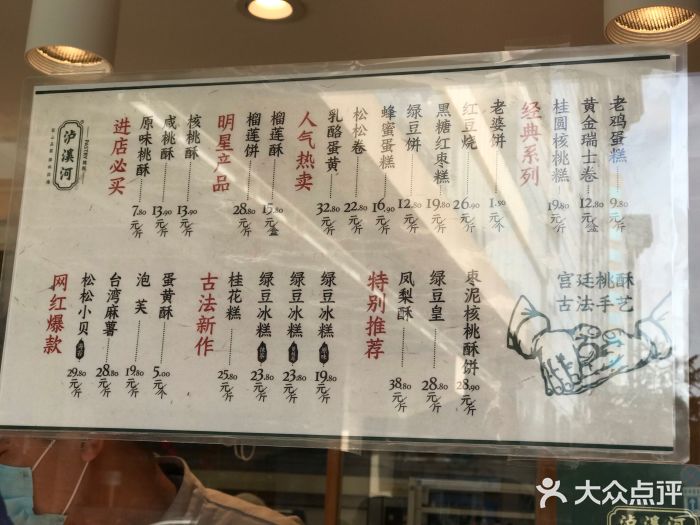 泸溪河
PASTRY
进店必买
原味桃酥 7.80元/斤
咸桃酥 13.90元/斤
核桃酥 13.90元/斤
明星产品
榴莲饼 28.80元/斤
榴莲酥 15.80元/盒
人气热卖
乳酪蛋黄 32.80元/斤
松松卷 22.80元/斤
蜂蜜蛋糕 16.90元/斤
绿豆饼 12.80元/斤
黑糖红枣糕 19.80元/斤
红豆烧 26.90元/斤
老婆饼 1.50元/个
经典系列
桂圆核桃糕 19.80元/斤
黄金瑞士卷 12.80元/盒
老鸡蛋糕 9.80元/斤
网红爆款
松松小贝 29.80元/斤
台湾麻薯 28.80元/斤
泡芙 19.80元/斤
蛋黄酥 5.00元/个
古法新作
桂花糕 25.80元/斤
绿豆冰糕 23.80元/斤
绿豆冰糕 23.80元/斤
绿豆冰糕 19.80元/斤
特别推荐
凤梨酥 38.80元/斤
绿豆皇 28.80元/斤
枣泥核桃酥饼 28.90元/斤
宫廷桃酥
古法手艺
大众点评